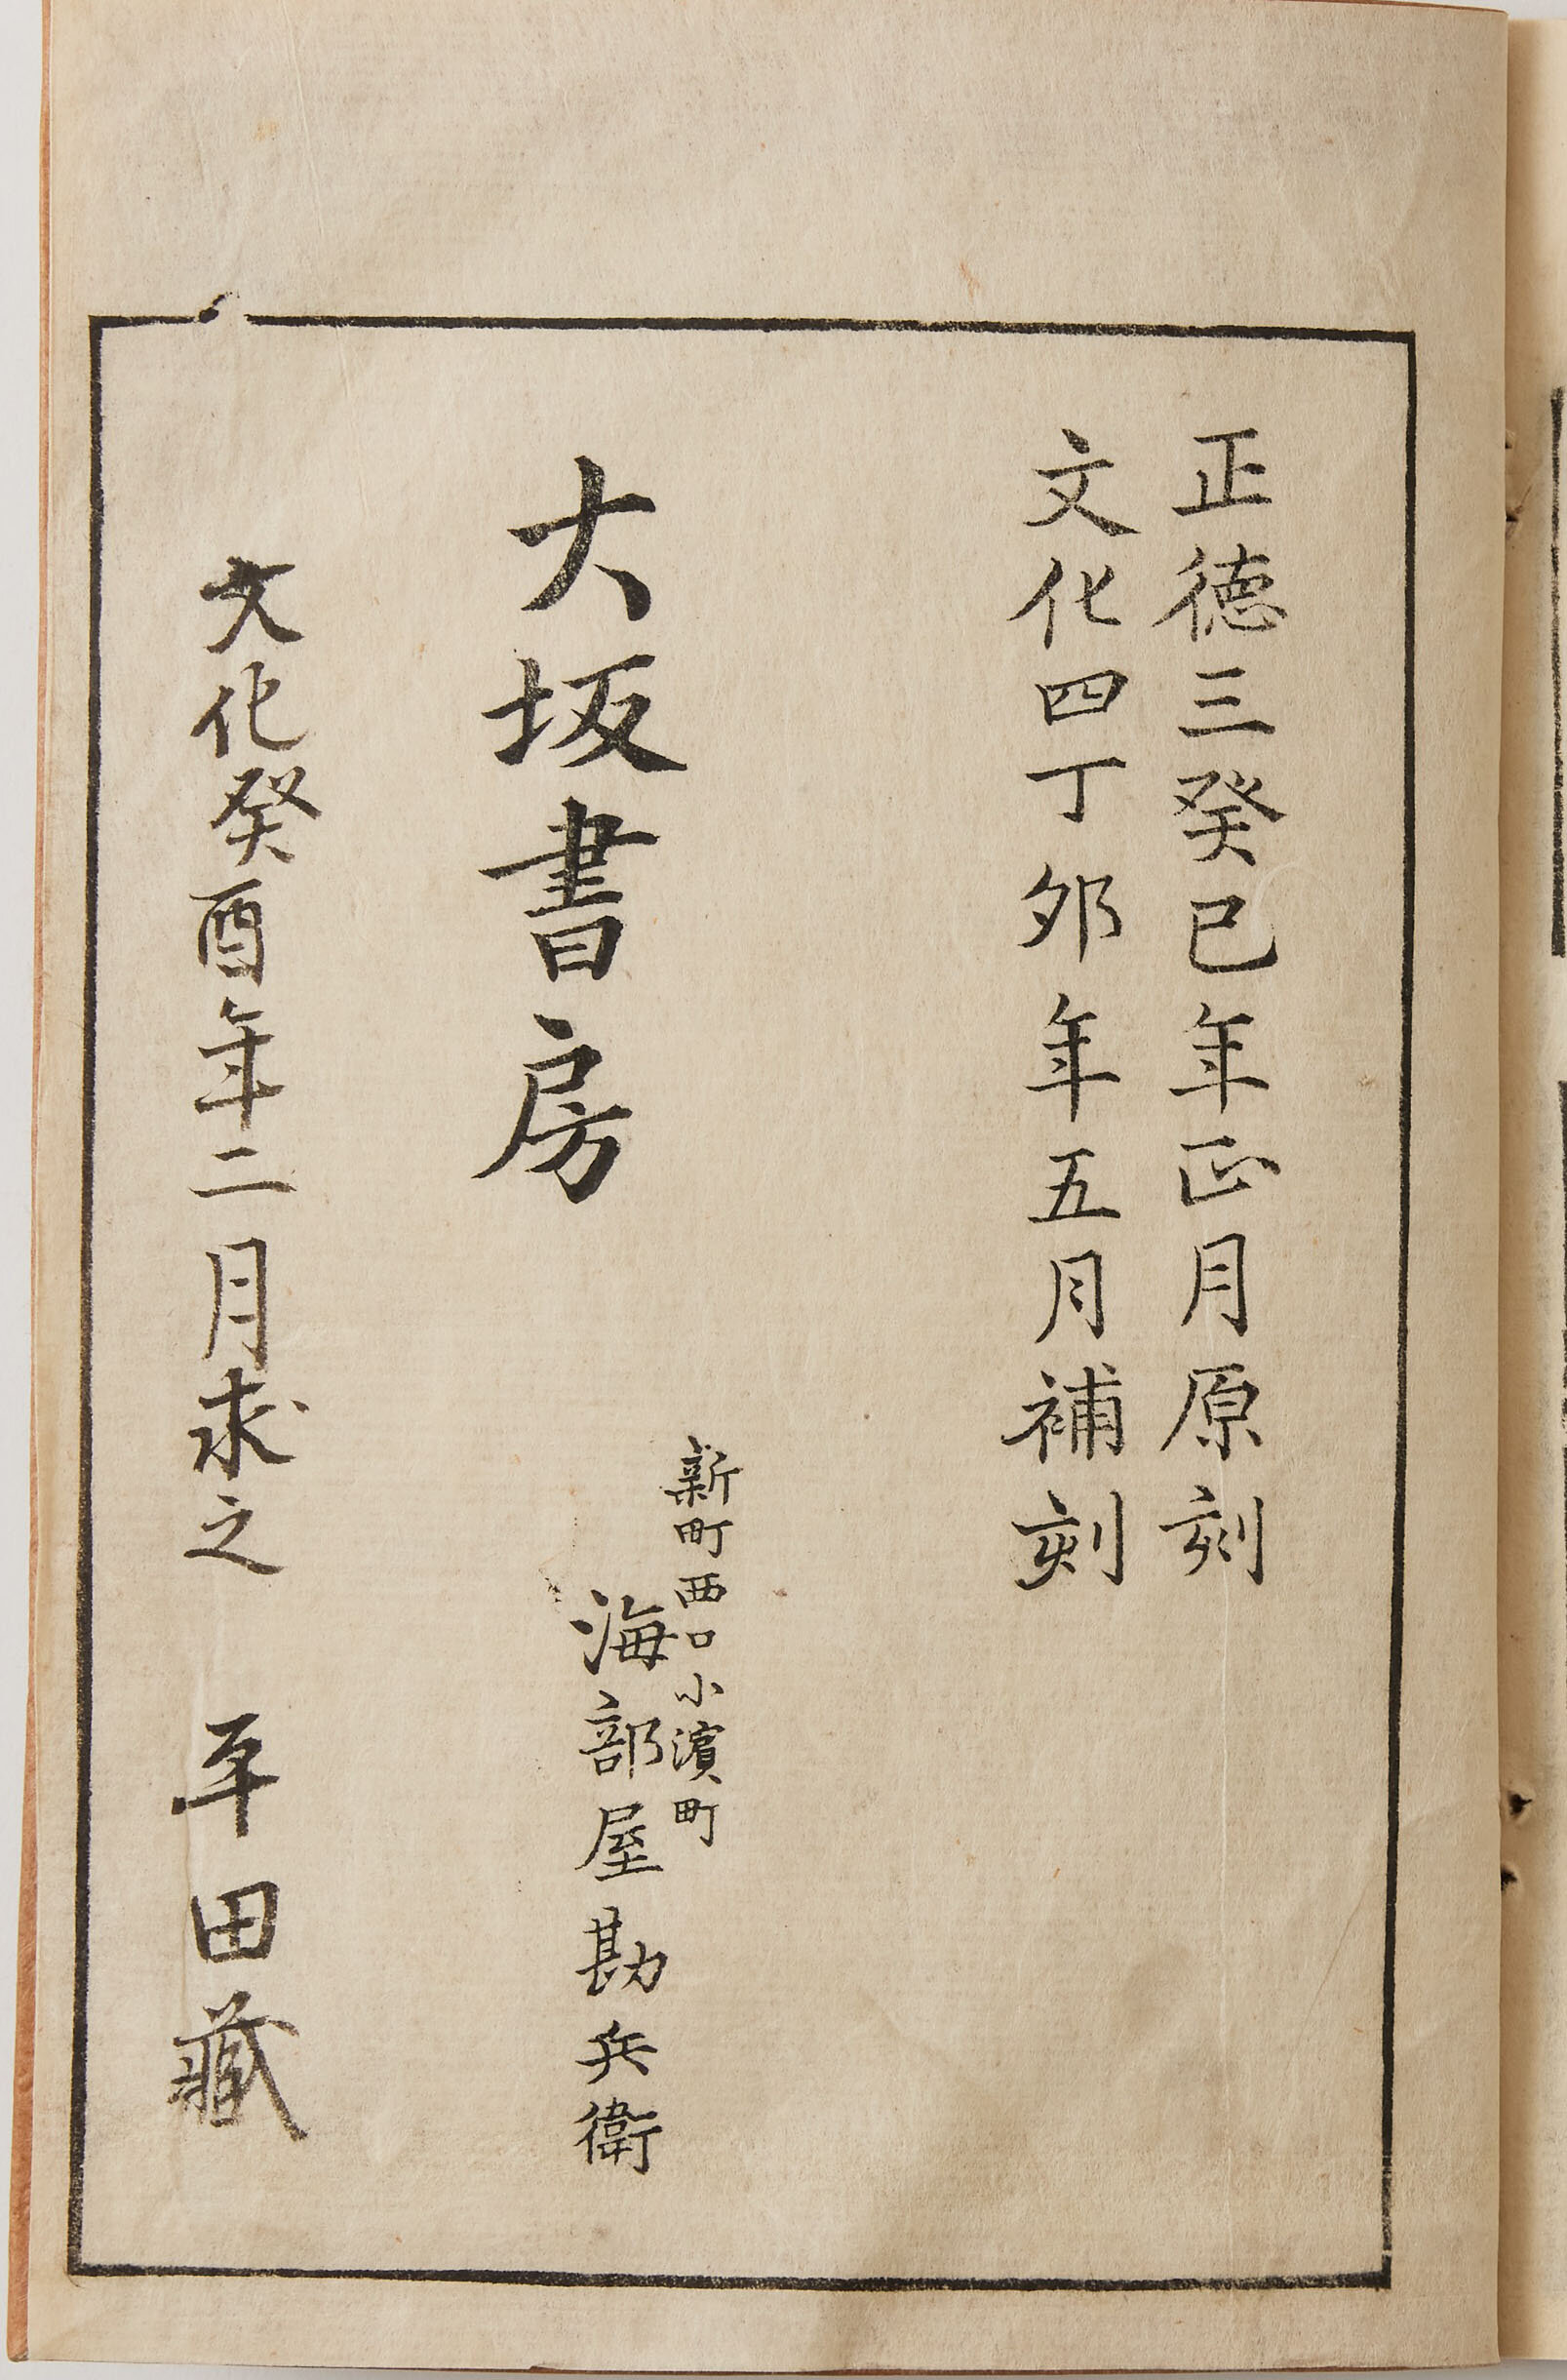 正徳三癸巳年正月原刻
文化四丁夘年五月補刻
大坂書房
新町西口小濱町
海部屋勘兵衛
文化癸酉年二月求之 平田藏